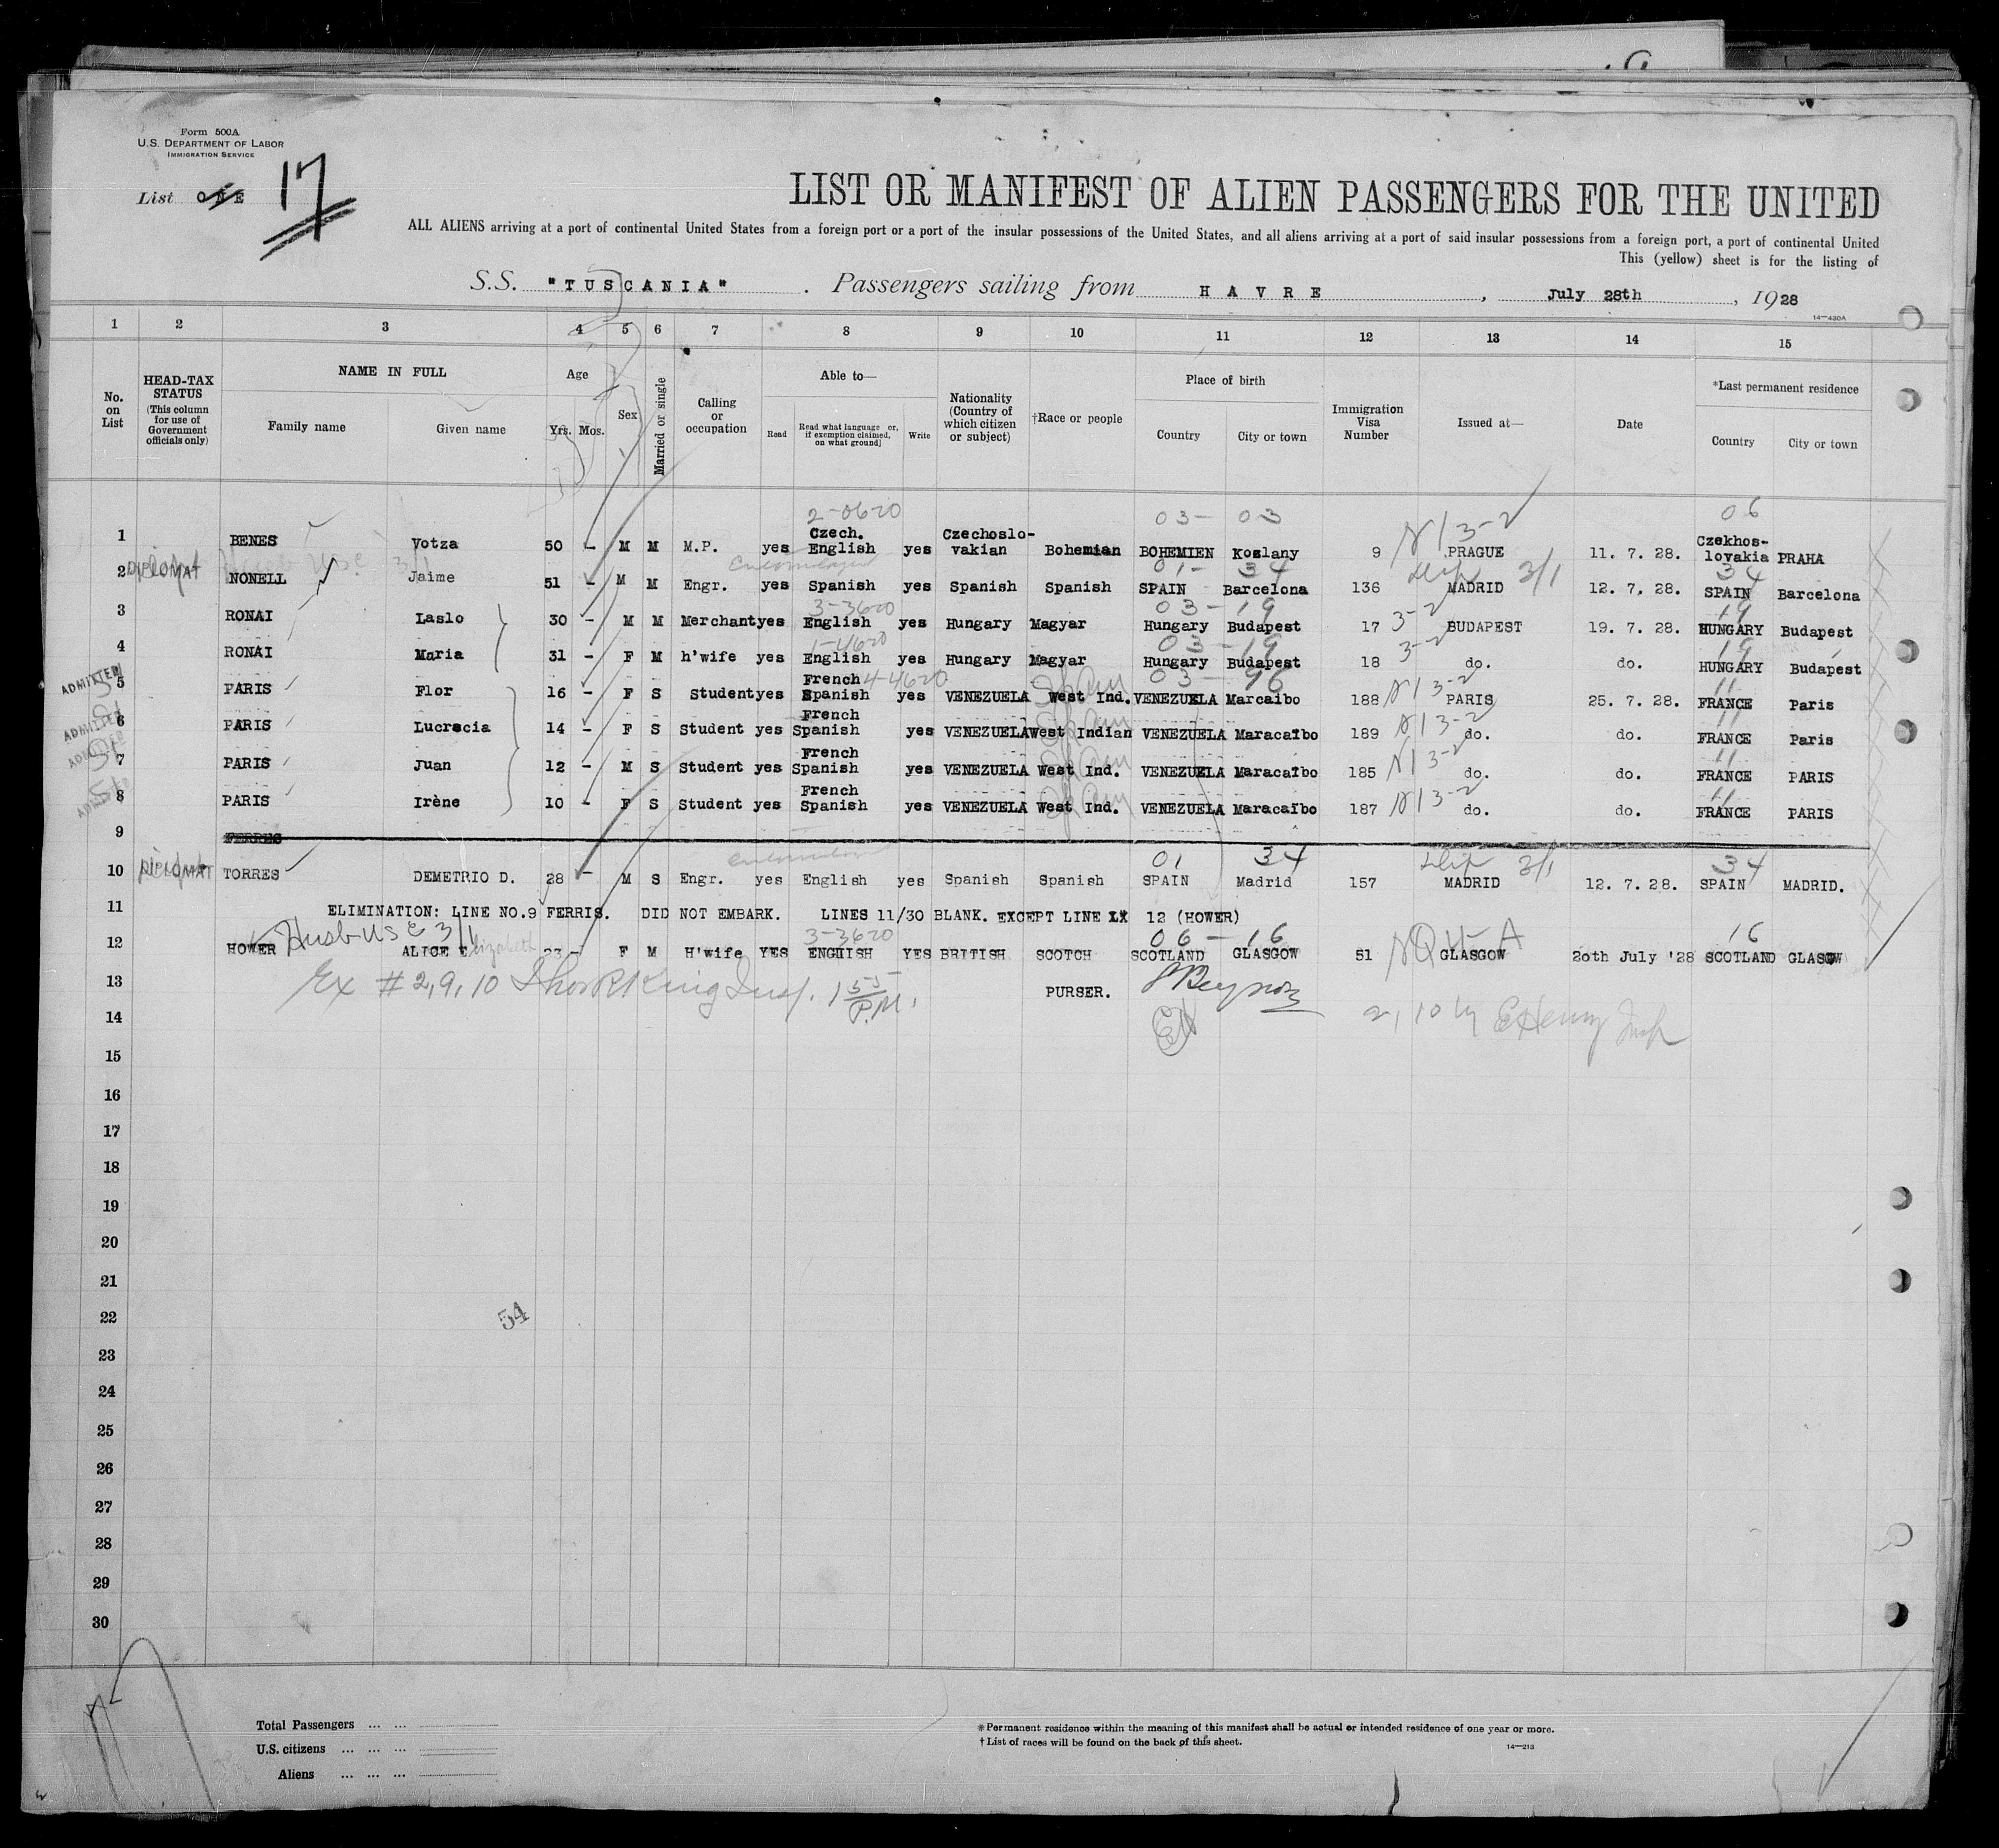 Form 500A
U.S. DEPARTMENT OF LABOR
IMMIGRATION SERVICE
List ONE 17
LIST OR MANIFEST OF ALIEN PASSENGERS FOR THE UNITED
ALL ALIENS arriving at a port of continental United States from a foreign port or a port of the insular possessions of the United States, and all aliens arriving at a port of said insular possessions from a foreign port, a port of continental United
This (yellow) sheet is for the listing of
S.S. "TUSCANIA" . Passengers sailing from HAVRE , July 28th , 1928
14—430A
1 2 3 4 5 6 7 8 9 10 11 12 13 14 15
No. on List
HEAD-TAX STATUS (This column for use of Government officials only)
NAME IN FULL
Family name Given name
Age
Yrs. Mos.
Sex
Married or single
Calling or occupation
Able to—
Read Read what language or, if exemption claimed, on what ground] Write
Nationality (Country of which citizen or subject)
†Race or people
Place of birth
Country City or town
Immigration Visa Number
Issued at—
Date
*Last permanent residence
Country City or town
2-0620 03- 03 06
1 BENES Votza 50 - M M M.P. yes Czech. English yes Czechoslo-vakian Bohemian BOHEMIEN Koslany 9 N13-2 PRAGUE 11. 7. 28. Czekhos-lovakia PRAHA
01- 34 Dip 3/1 34
2 DIPLOMAT NONELL Jaime 51 - M M Engr. yes Spanish yes Spanish Spanish SPAIN Barcelona 136 MADRID 12. 7. 28. SPAIN Barcelona
3-3620 03-19 3-2 19
3 RONAI Laslo 30 - M M Merchant yes English yes Hungary Magyar Hungary Budapest 17 BUDAPEST 19. 7. 28. HUNGARY Budapest
1-4620 03-19 3-2 19
4 RONAI Maria 31 - F M h'wife yes English yes Hungary Magyar Hungary Budapest 18 do. do. HUNGARY Budapest
4-4620 03-96 11
ADMITTED 5 PARIS Flor 16 - F S Student yes French Spanish yes VENEZUELA West Ind. VENEZUELA Marcaibo 188 N13-2 PARIS 25. 7. 28. FRANCE Paris
ADMITTED 6 PARIS Lucracia 14 - F S Student yes French Spanish yes VENEZUELA West Indian VENEZUELA Maracaïbo 189 N13-2 do. do. FRANCE Paris
ADMITTED 7 PARIS Juan 12 - M S Student yes French Spanish yes VENEZUELA West Ind. VENEZUELA Maracaïbo 185 N13-2 do. do. FRANCE PARIS
ADMITTED 8 PARIS Irène 10 - F S Student yes French Spanish yes VENEZUELA West Ind. VENEZUELA Maracaïbo 187 N13-2 do. do. FRANCE PARIS
9 FERRES
01 34 Dip 3/1 34
10 DIPLOMAT TORRES DEMETRIO D. 28 - M S Engr. yes English yes Spanish Spanish SPAIN Madrid 157 MADRID 12. 7. 28. SPAIN MADRID.
11 ELIMINATION: LINE NO.9 FERRIS. DID NOT EMBARK. LINES 11/30 BLANK. EXCEPT LINE 12 (HOWER)
Husb US C 3/1 3-3620 06-16 16
12 HOWER ALICE Elizabeth 23 - F M H'wife YES ENGLISH YES BRITISH SCOTCH SCOTLAND GLASGOW 51 GLASGOW 20th July '28 SCOTLAND GLASGOW
13 Ex #2,9,10 King Insp. 1 55 P.M. PURSER.
14 2, 10 by E Henry Insp
15
16
17
18
19
20
21
22
54
23
24
25
26
27
28
29
30
Total Passengers ... ...
U.S. citizens ... ... ...
Aliens ... ... ...
*Permanent residence within the meaning of this manifest shall be actual or intended residence of one year or more.
†List of races will be found on the back of this sheet.
14—213